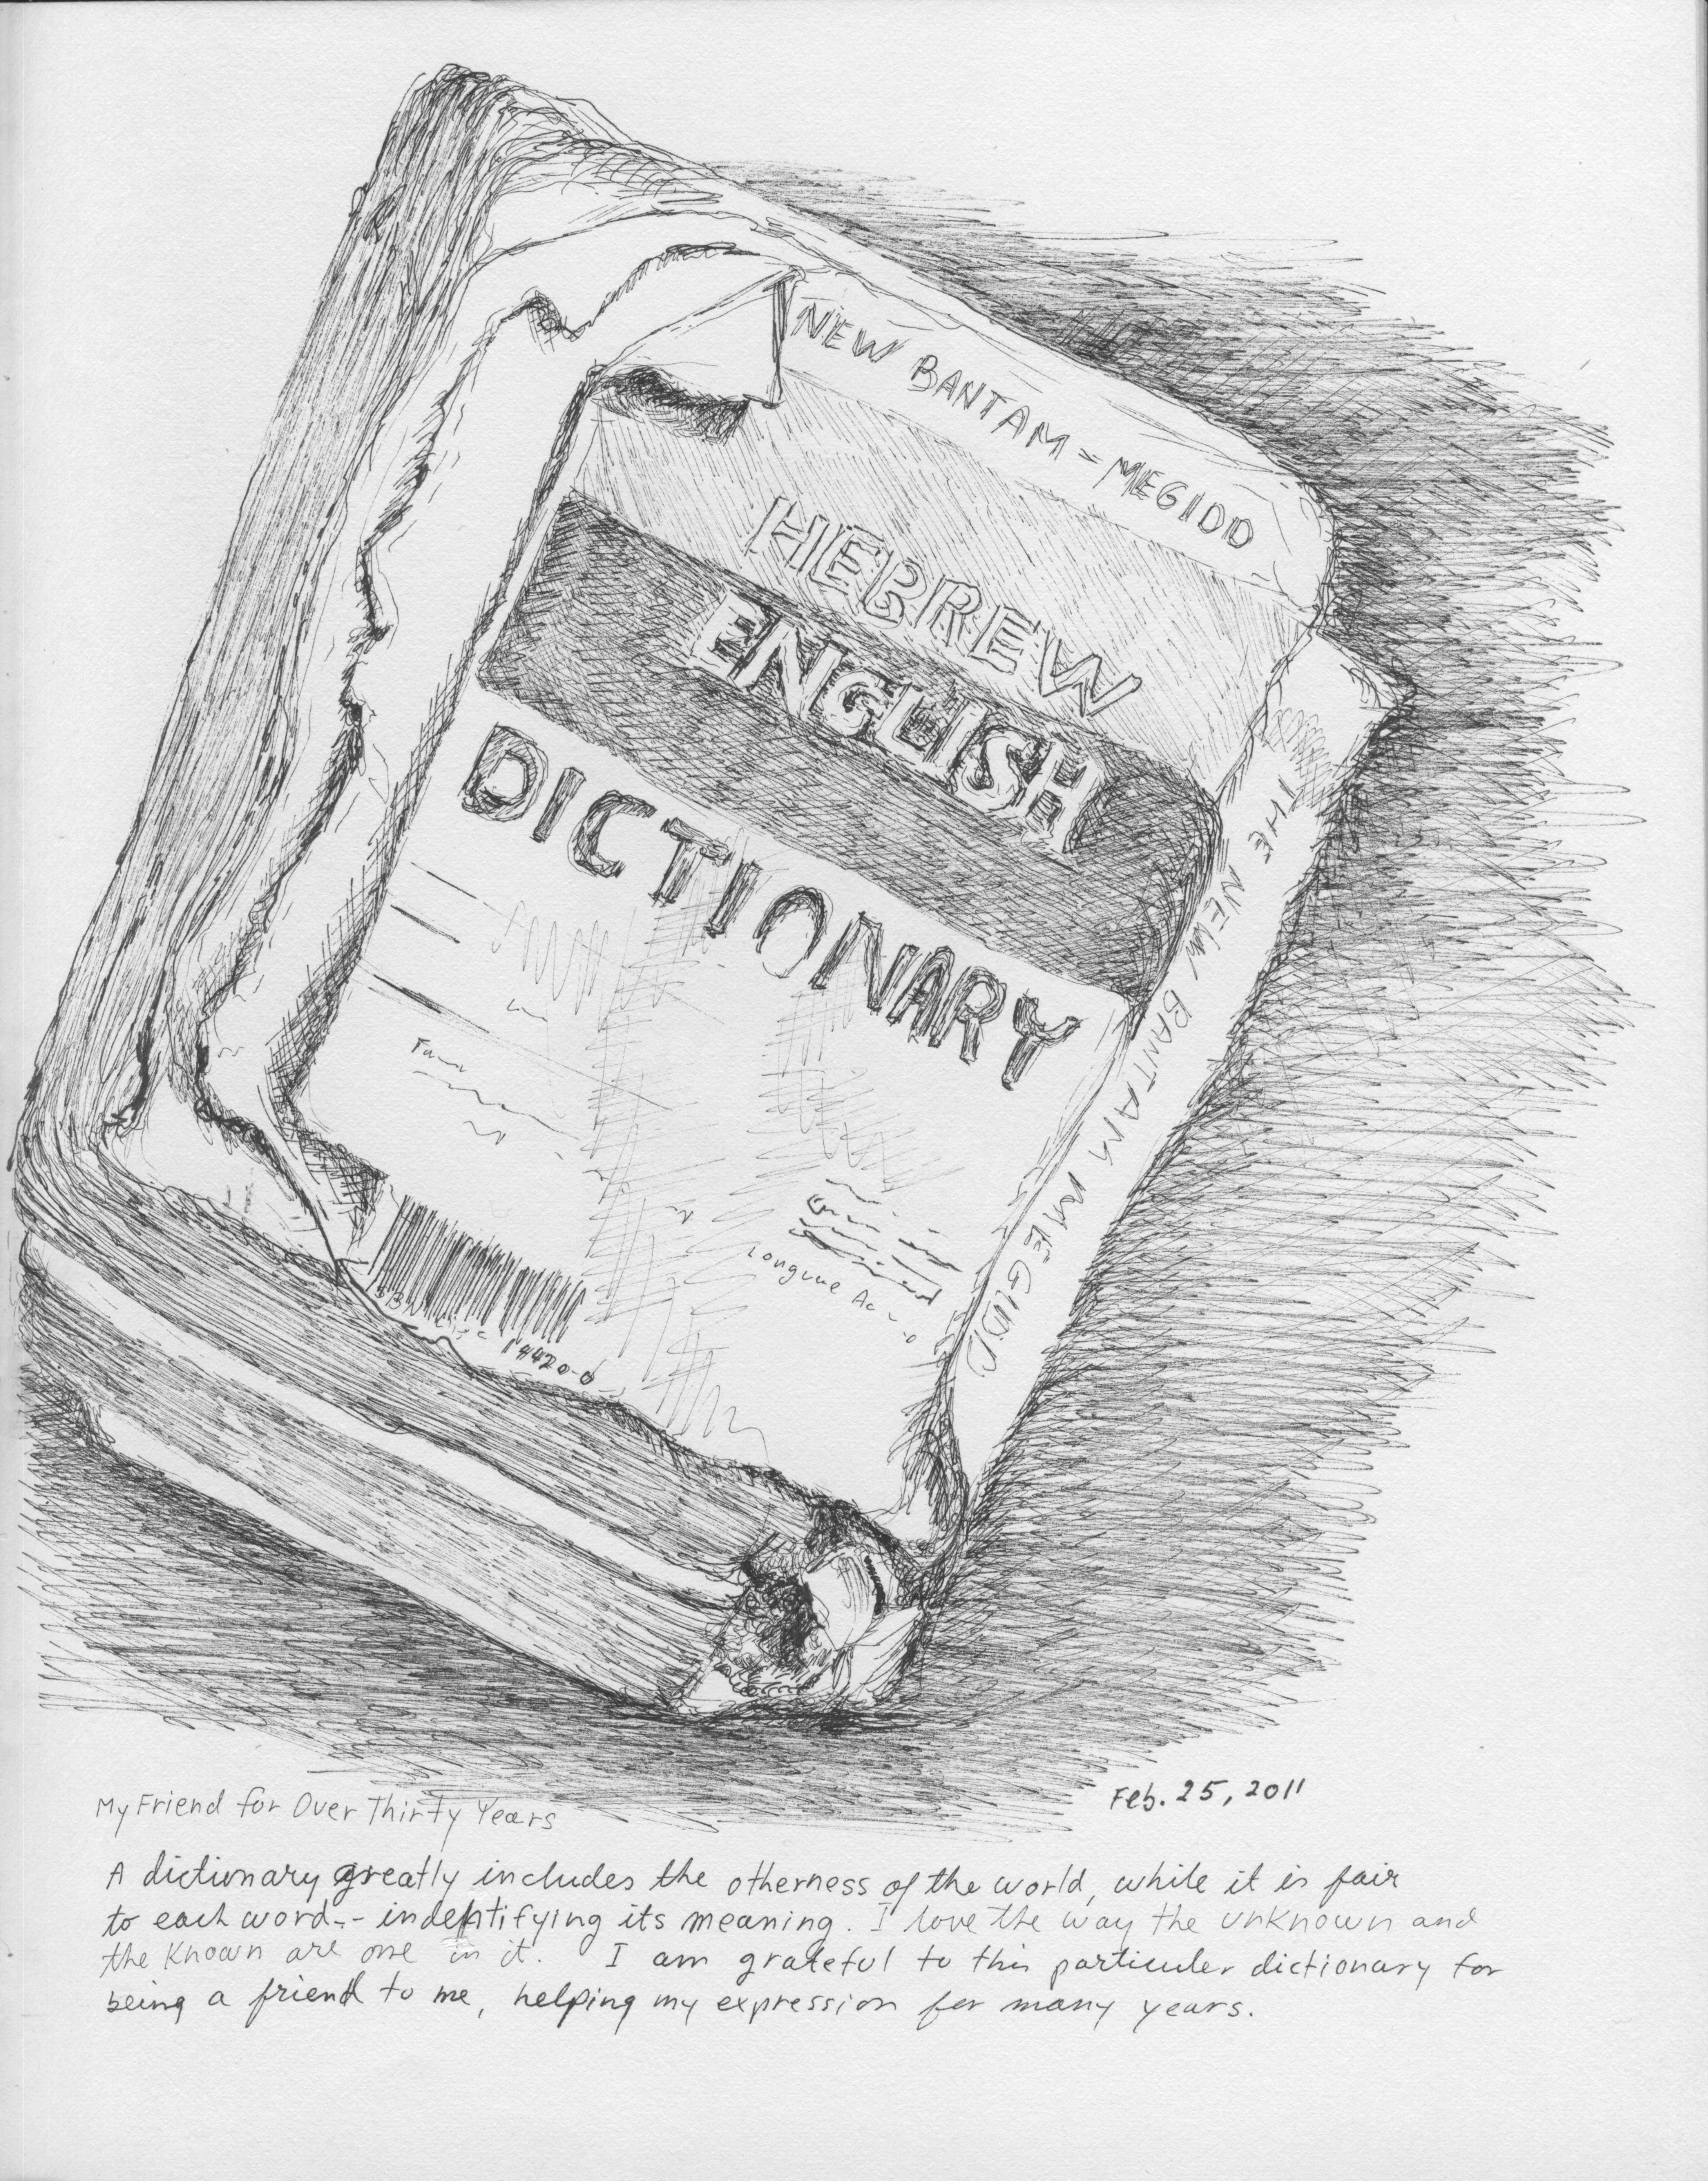 NEW BANTAM = MEGIDO
HEBREW
ENGLISH
DICTIONARY
THE NEW BANTAM MEGIDO
14420-0
My Friend for Over Thirty Years
Feb. 25, 2011
A dictionary greatly includes the otherness of the world, while it is fair
to each word-- indentifying its meaning. I love the way the unknown and
the known are one in it. I am grateful to this particuler dictionary for
being a friend to me, helping my expression for many years.